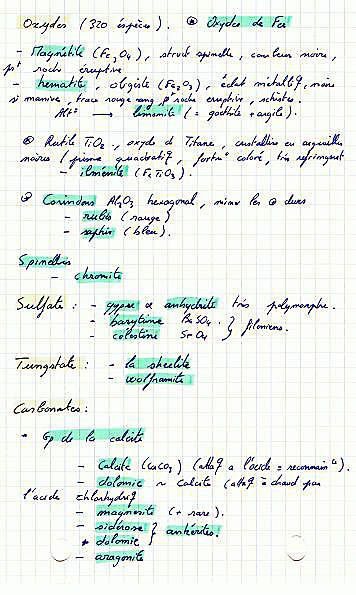 Oxydes (320 espèces). ⊛ Oxydes de Fer
- Magnétite (Fe3O4), struct spinelle, couleur noire,
pt roche éruptive
- hématite, oligiste (Fe2O3), éclat métallq, noire
si massive, trace rouge sang, pt roche éruptive, schistes.
Alt° → limonite (= goethite + argile).
⊛ Rutile TiO2, oxyde de Titane, cristallise en aiguilles
noires (prisme quadratiq, fortmt coloré, très réfringent
- ilménite (FeTiO3).
Corindons Al2O3 hexagonal, minx les ⊕ durs
- rubis (rouge)
- saphir (bleu).
Spinelles
- chromite
Sulfate : - gypse et anhydrite très polymorphe.
- barytine BaSO4 } filoniens.
- célestine SrO4
Tungstate : - la sheelite
- wolframite
Carbonates :
• Gp de la calcite
- Calcite (CaCO3) (attaq à l'acide = reconnaint)
- dolomie ~ calcite (attaq à chaud par
l'acide chlorhydriq
- magnésite (+ rare).
- sidérose } ankérites.
* dolomie
- aragonite